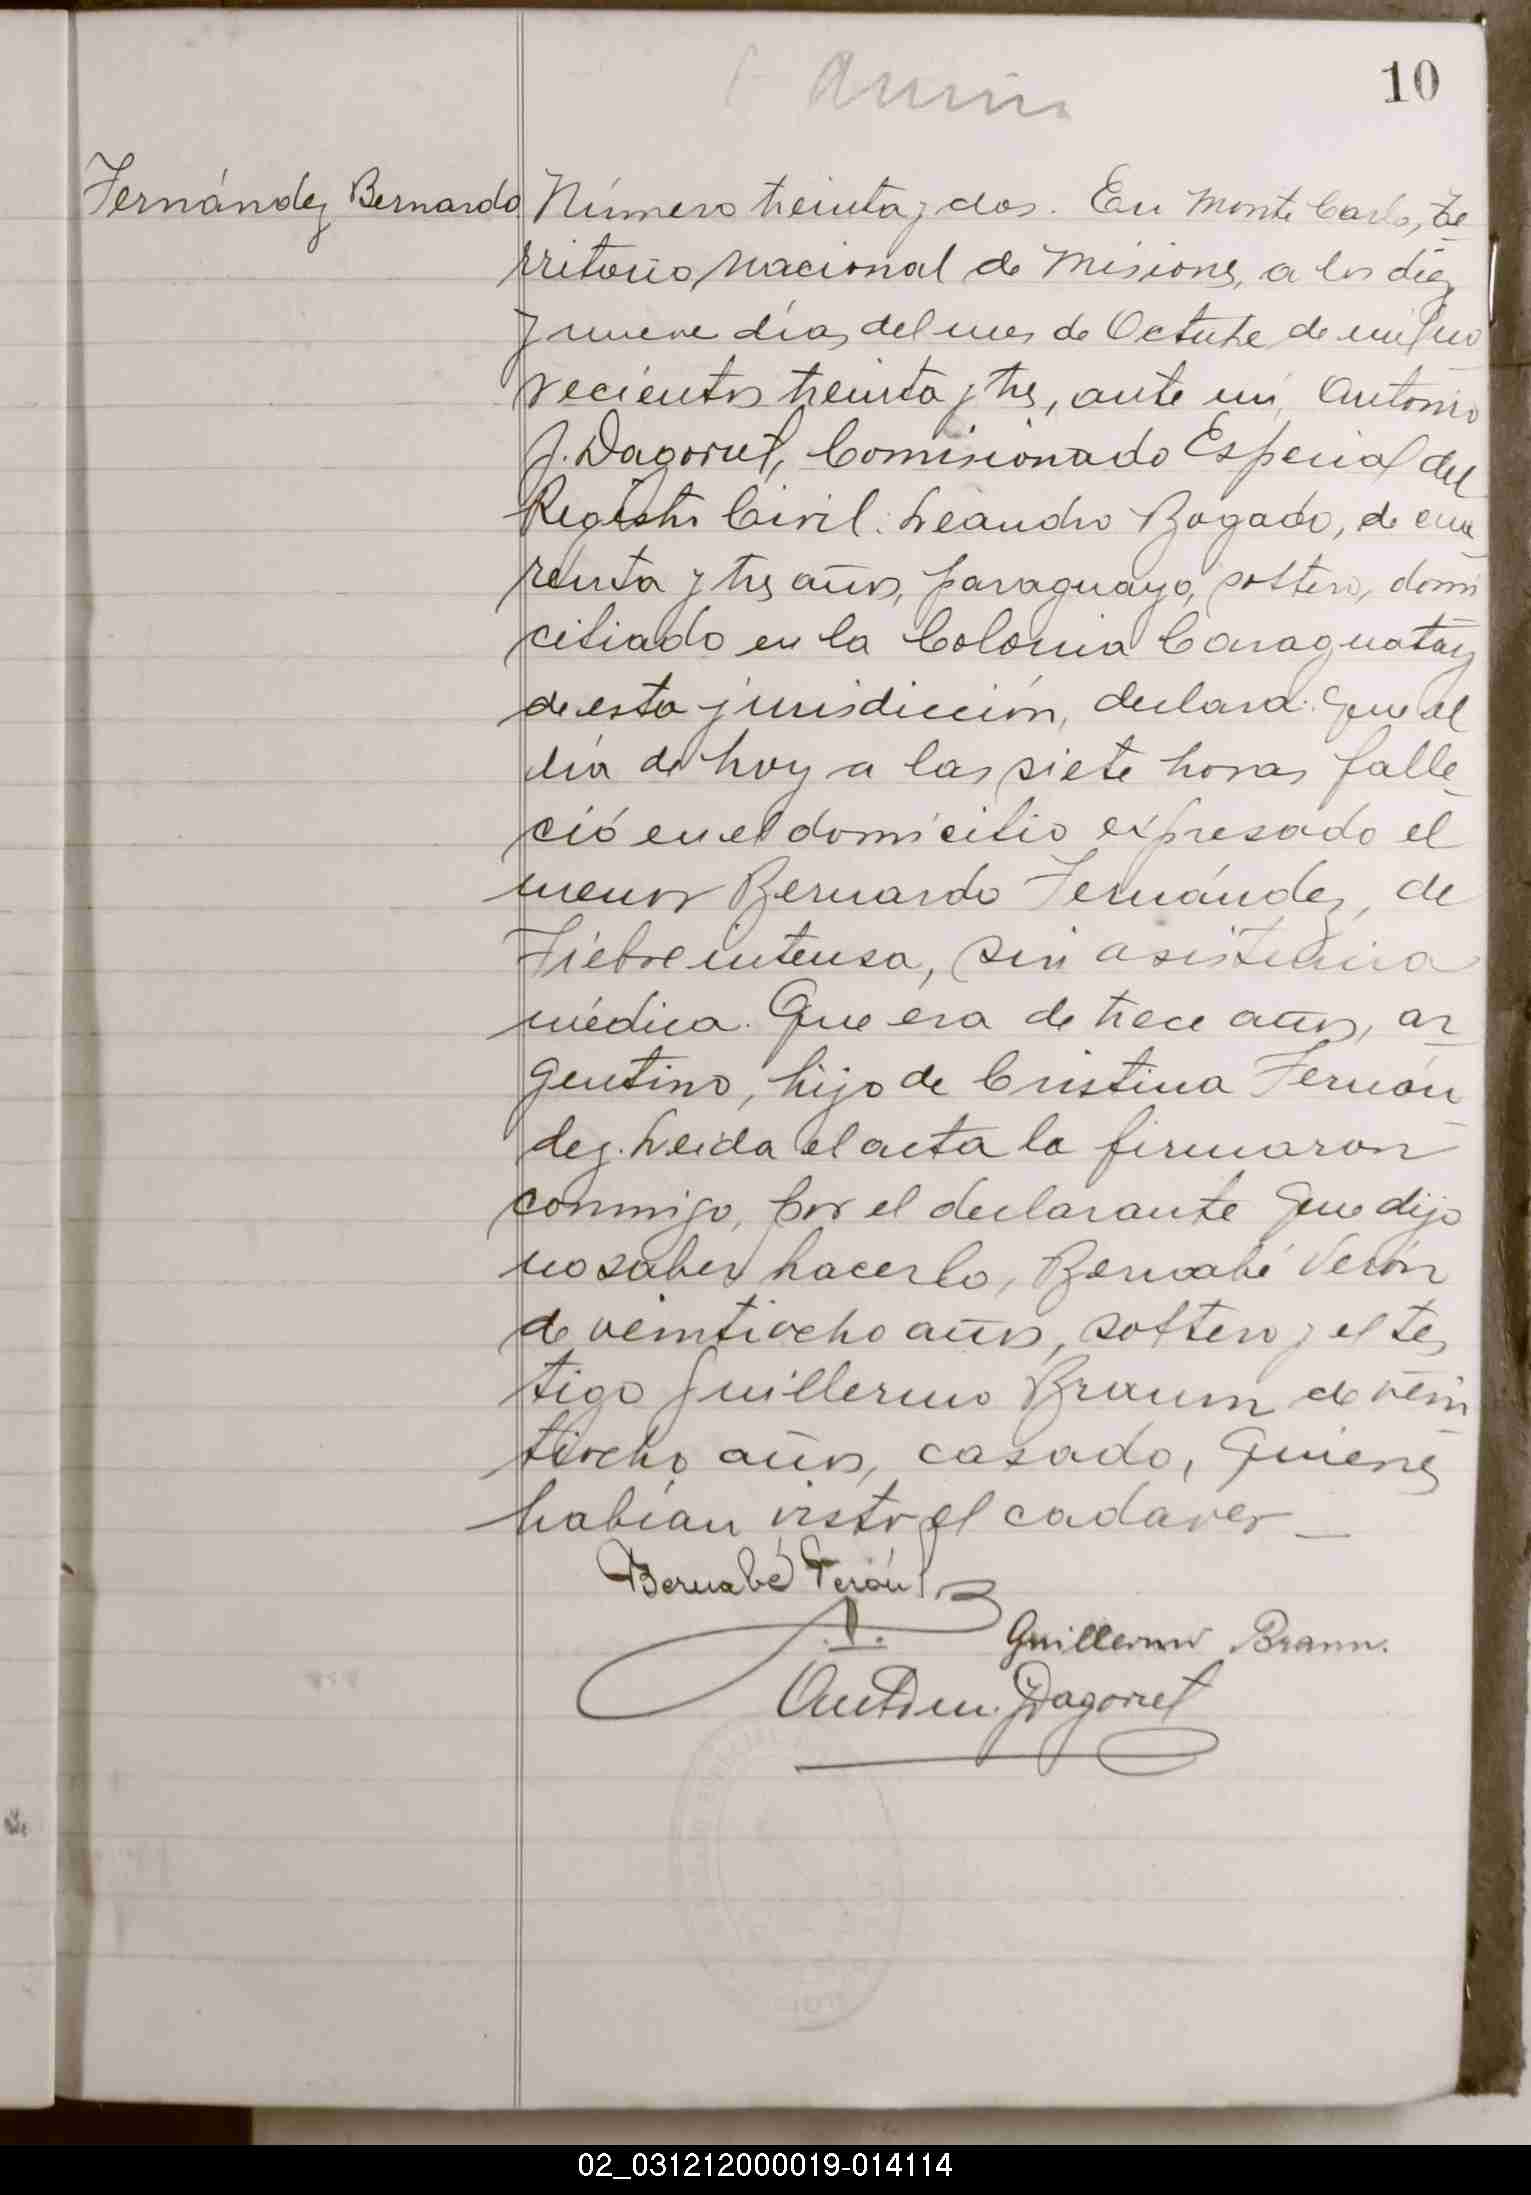 10
Fernández Bernardo
Número treinta y dos. En Monte Carlo, Te
rritorio nacional de Misiones, a los diez
y nueve días del mes de Octubre de mil no
vecientos treinta y tres, ante mí, Antonio
J. Dagorret, Comisionado Especial del
Registro Civil: Leandro Bogado, de cua
renta y tres años, paraguayo, soltero, domi
ciliado en la Colonia Caraguatay
de esta jurisdicción, declara: Que el
día de hoy a las siete horas falle
ció en el domicilio expresado el
menor Bernardo Fernández, de
Fiebre intensa, sin asistencia
médica. Que era de trece años, ar
gentino, hijo de Cristina Fernán
dez. Leida el acta la firmaron
conmigo, por el declarante que dijo
no saber hacerlo, Bernabé Verón
de veintiocho años, soltero y el tes
tigo Guillermo Braum de vein
tiocho años, casado, quienes
habían visto el cadáver
Bernabé Verón
Guillermo Braum.
Anton. J Dagorret
02_031212000019-014114